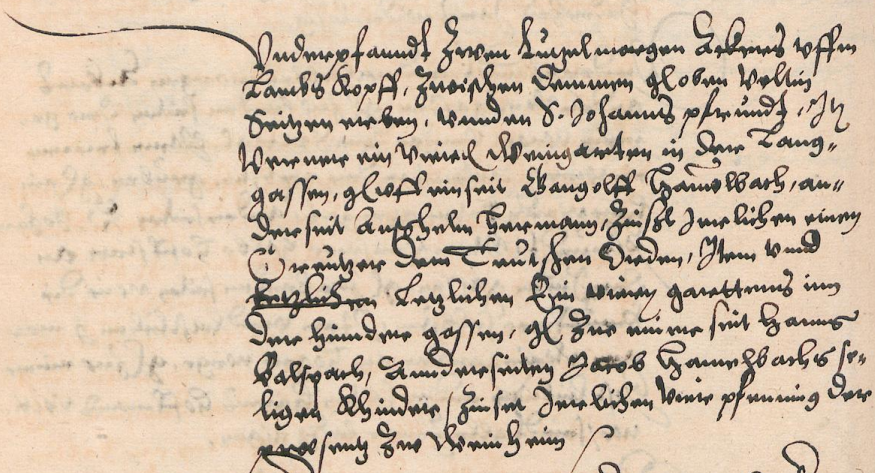 Vnderpfanndt Zwen Lützelmorgen Ackers vffm
Lambs Kopff, Zwischen dem globen Veltin
Seitzen erben, vnnd S. Johanns pfrundt, Itz
Vernere ein Viertl Weingarten in der Lang-
gassen, einseit Gangolff Hamelbach, an-
derseit Anshelm Hermann, Zinst Jerlichen einen
Creutzer dem Teutschen Orden, Item vnnd
Letzlichen Ein garttens inn
der hinder gassen, einer seit Hanns
Balspach, Annderseiten Jacob Hamelbachs se-
ligen Khinder, Zinset Jerlichen Vier pfenning der
presentz Zw Weinheim